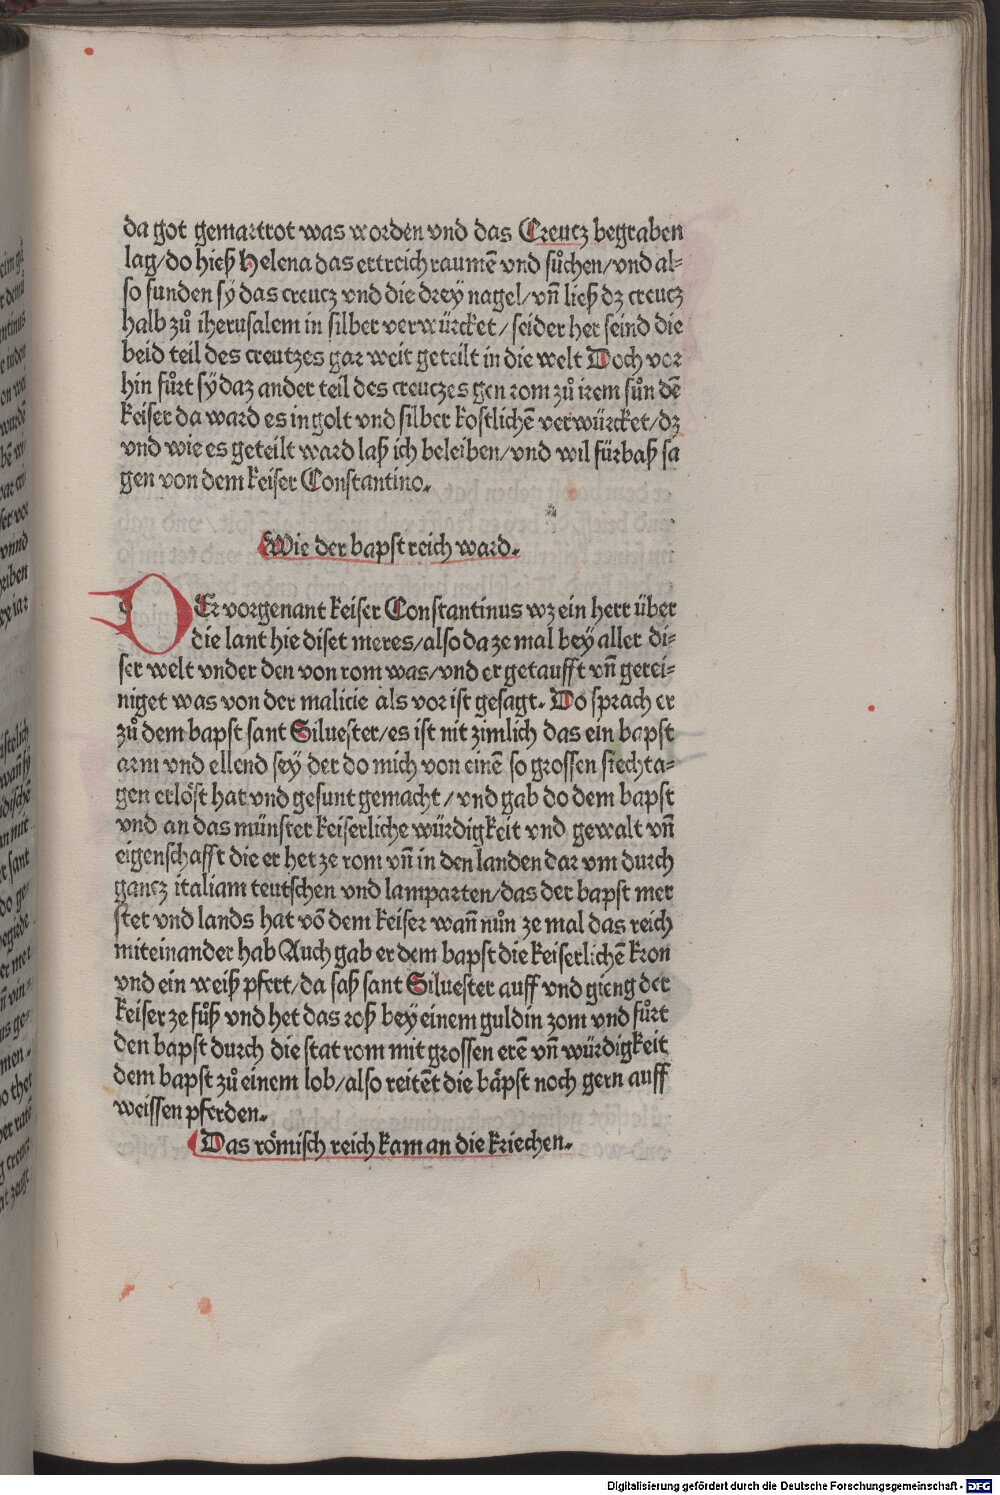 da got gemartrot was worden vnd das Creucz begraben
lag/do hieß Helena das ertreich raumē vnd sůchen/vnd al⸗
so funden sÿ das creucz vnd die dreÿ nagel/vn̄ ließ dz creucz
halb zů iherusalem in silber verwürcket/seider her seind die
beid teil des creutzes gar weit geteilt in die welt Doch vor
hin fůrt sÿ daz ander teil des creuczes gen rom zů irem sůn dē
keiser da ward es in golt vnd silber kostlichē verwürcket/dz
vnd wie es geteilt ward laß ich beleiben/vnd wil fürbaß sa
gen von dem keiser Constantino.
Wie der bapst reich ward.
DEr vorgenant keiser Constantinus wz ein herr über
die lant hie diset meres/also da ze mal beÿ aller di⸗
ser welt vnder den von rom was/vnd er getaufft vn̄ gerei⸗
niget was von der malicie als vor ist gesagt. Do sprach er
zů dem bapst sant Siluester/es ist nit zimlich das ein bapst
arm vnd ellend sey der do mich von einē so grossen siechta⸗
gen erlöst hat vnd gesunt gemacht/vnd gab do dem bapst
vnd an das münster keiserliche würdigkeit vnd gewalt vn̄
eigenschafft die er het ze rom vn̄ in den landen dar vm durch
gancz italiam teutschen vnd lamparten/das der bapst mer
ster vnd lands hat vō dem keiser wan̄ nůn ze mal das reich
miteinander hab Auch gab er dem bapst die keiserlichē kron
vnd ein weiß pfert/da saß sant Siluester auff vnd gieng der
keiser ze fůß vnd het das roß beÿ einem guldin zom vnd fůrt
den bapst durch die stat rom mit grossen erē vn̄ würdigkeit
dem bapst zů einem lob/also reitēt die bäpst noch gern auff
weissen pferden.
Das römisch reich kam an die kriechen.
Digitalisierung gefördert durch die Deutsche Forschungsgemeinschaft - DFG